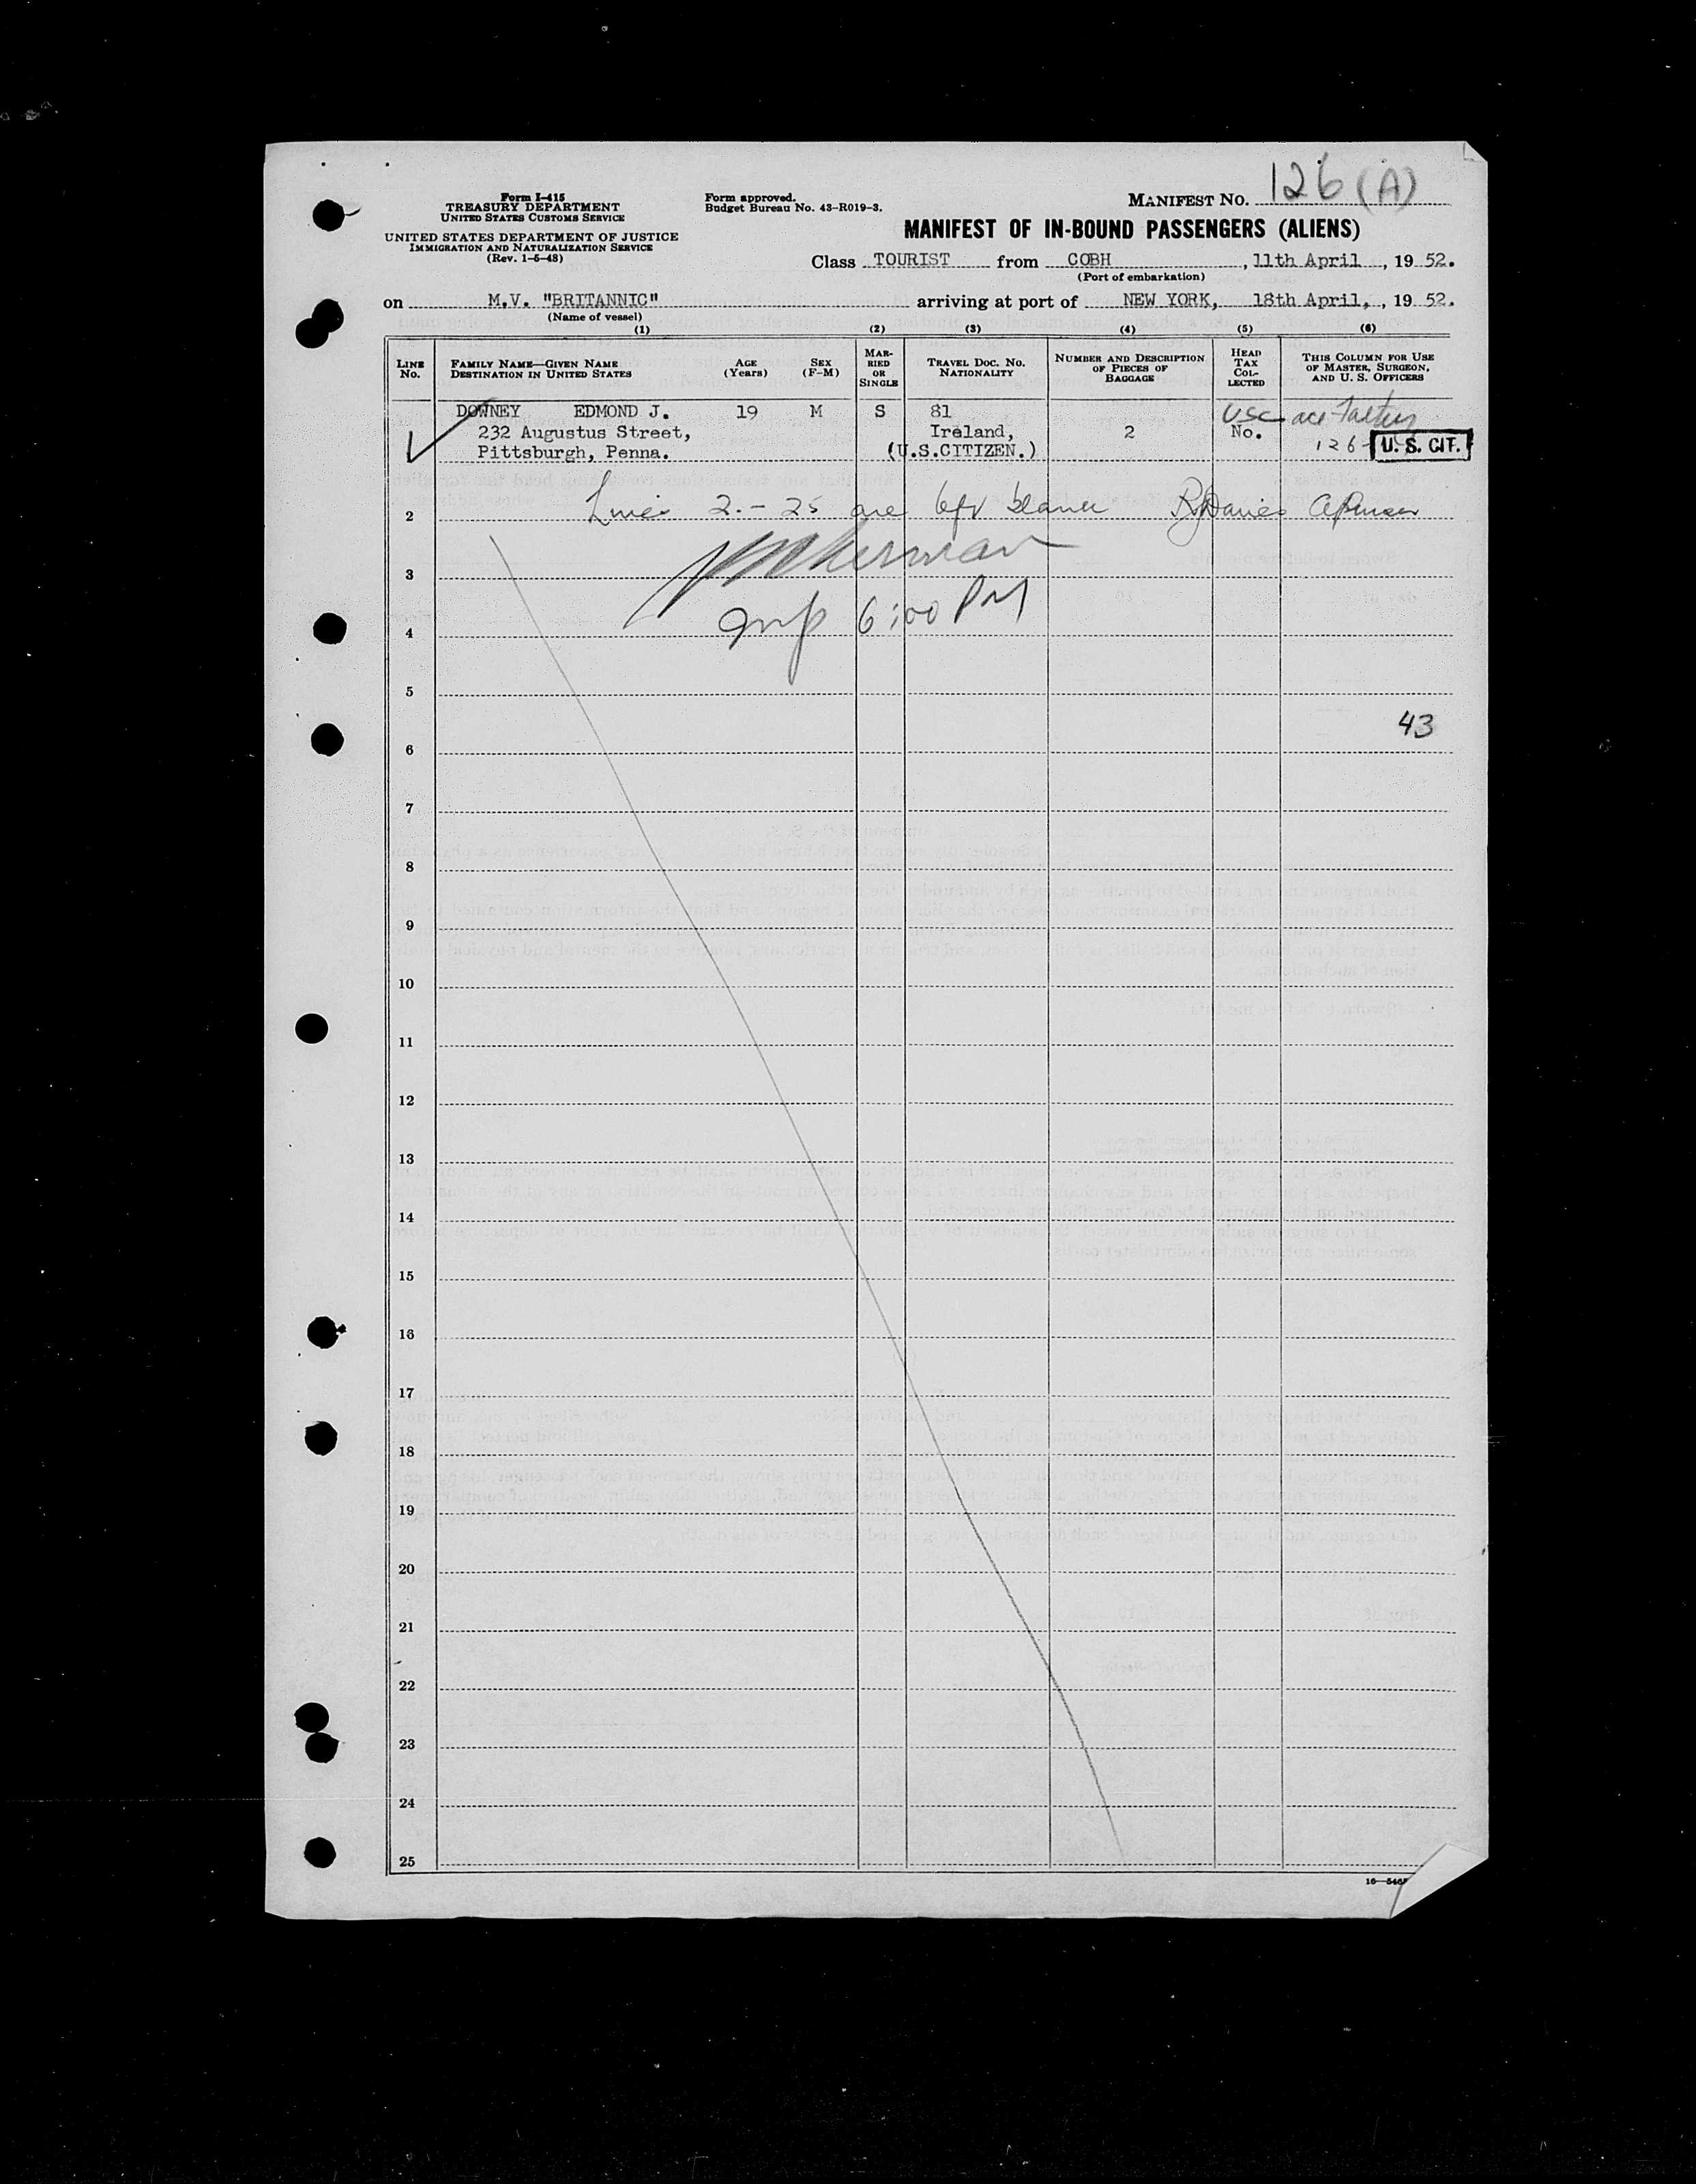 126 (A)
Form I-415
TREASURY DEPARTMENT
UNITED STATES CUSTOMS SERVICE
UNITED STATES DEPARTMENT OF JUSTICE
IMMIGRATION AND NATURALIZATION SERVICE
(Rev. 1-5-48)
Form approved.
Budget Bureau No. 43-R019-3.
MANIFEST NO.
MANIFEST OF IN-BOUND PASSENGERS (ALIENS)
Class TOURIST from COBH, 11th April, 19 52.
(Port of embarkation)
on M.V. "BRITANNIC" arriving at port of NEW YORK, 18th April, , 19 52.
(Name of vessel)
(1) (2) (3) (4) (5) (6)
LINE No. FAMILY NAME—GIVEN NAME DESTINATION IN UNITED STATES AGE (Years) SEX (F-M) MARRIED OR SINGLE TRAVEL DOC. NO. NATIONALITY NUMBER AND DESCRIPTION OF PIECES OF BAGGAGE HEAD TAX COLLECTED THIS COLUMN FOR USE OF MASTER, SURGEON, AND U. S. OFFICERS
DOWNEY EDMOND J. 19 M S 81 USC
232 Augustus Street, Ireland, 2 No.
Pittsburgh, Penna. (U.S.CITIZEN.) 126 U. S. CIT.
2 Lines 2.-25 are left blank
3
4 6:00 PM
5
43
6
7
8
9
10
11
12
13
14
15
16
17
18
19
20
21
22
23
24
25